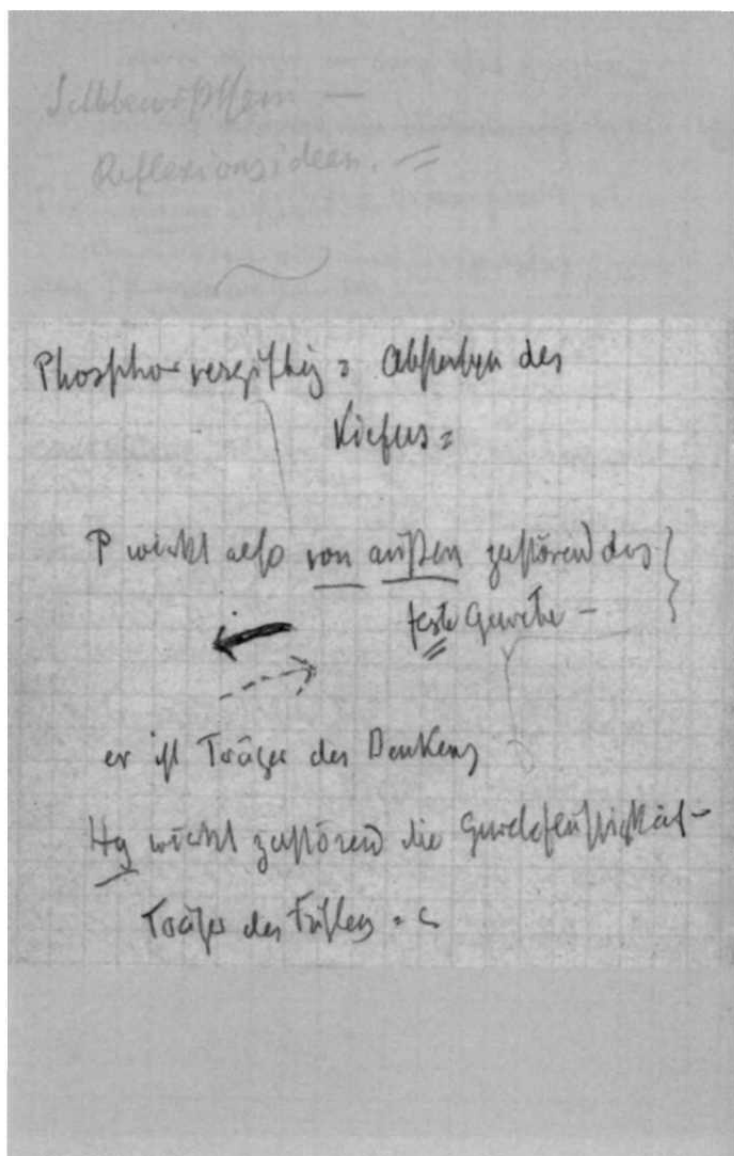 Selbstbewußtsein —
Reflexionsideen.
Phosphorvergiftung = Absterben des
Kiefers =
P wirkt also von außen zerstörend das
feste Gewebe —
er ist Träger des Denkens
Hg wirkt zerstörend die Gewebeflüssigkeit —
Träger des Fühlens =